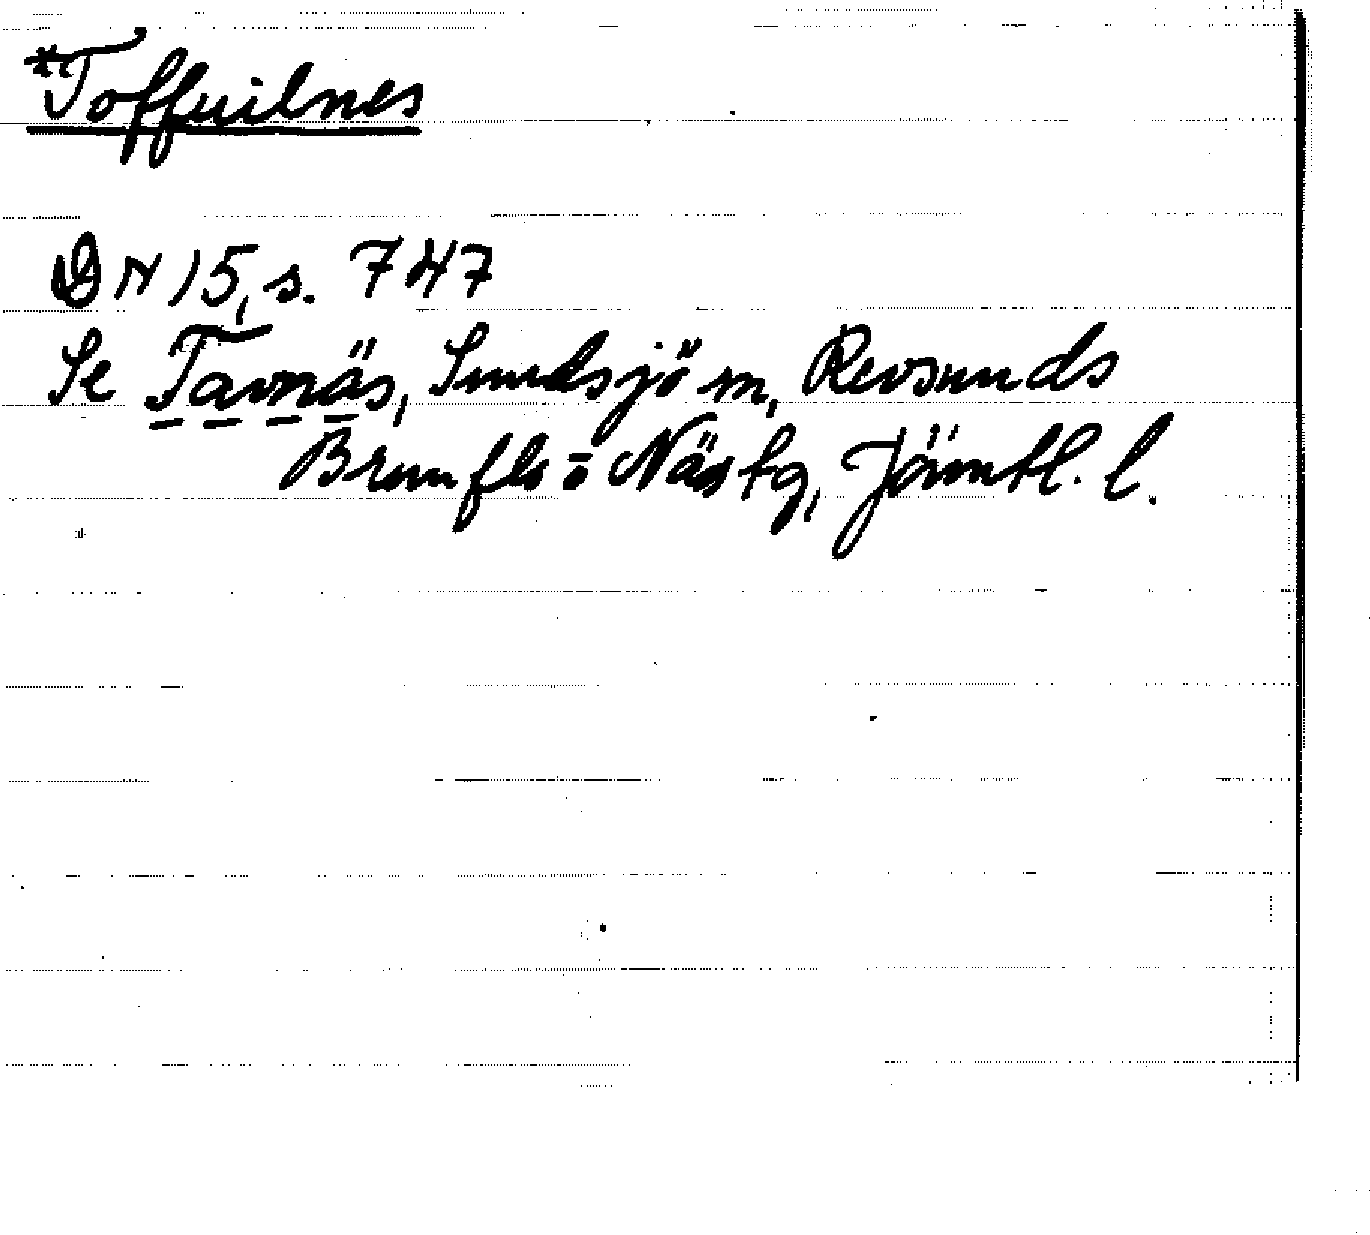 *Toffuilnes
DN 15, s. 747
Se Tavnäs, Sundsjö sn, Revsunds
Brunflo o Näs tg, Jämtl. l.